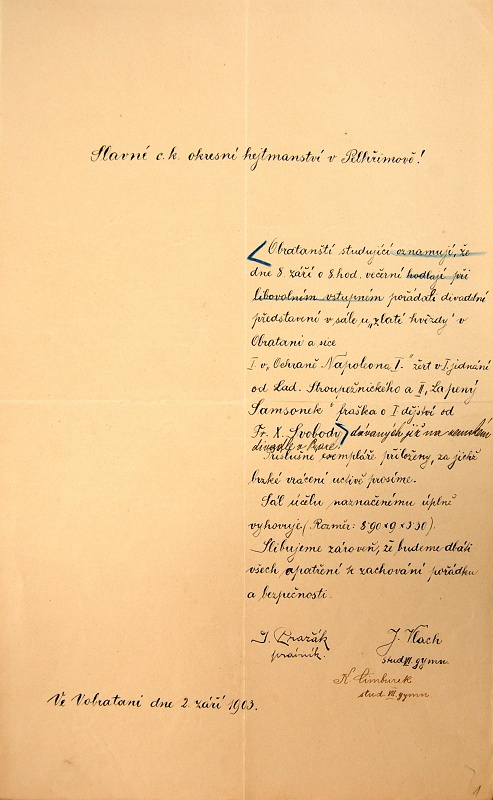 Slavné c.k. okresní hejtmanství v Pelhřimově!
Obratanští studující oznamují, že
dne 8. září o 8 hod. večerní hodlají při
libovolném vstupném pořádati divadelní
představení v sále u „zlaté hvězdy" v
Obratani a sice
I „v Ochraně Napoleona I." žert v I. jednání
od Lad. Stroupežnického a II „Lapený
Samsonek" fraška o I dějství od
Fr. X. Svobody dávaných již na zemském
divadle v Praze.
Příslušné exempláře přiloženy, za jichž
brzké vrácení uctivě prosíme.
Sál účelu naznačenému úplně
vyhovuje (Rozměr: 8·90 × 9 × 3·30).
Slibujeme zároveň, že budeme dbáti
všech opatření k zachování pořádku
a bezpečnosti.
Pražák J. Vlach
právník. stud. VI. gymn.
K. Cimburek
stud. VII. gymn
Ve Vobratani dne 2. září 1903.
1